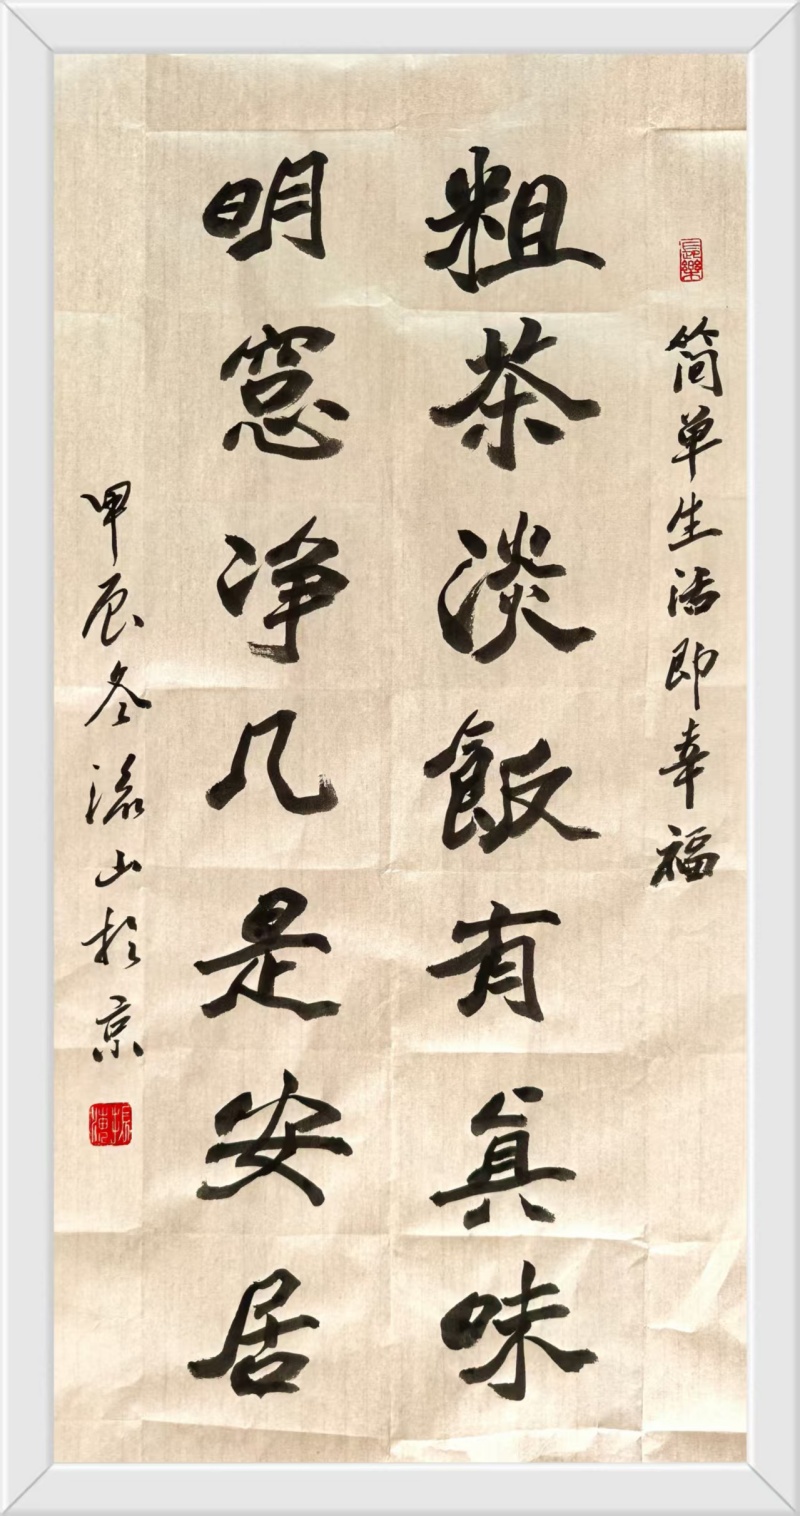 简单生活即幸福
粗茶淡飯有真味
明窓净几是安居
甲辰冬流山於京